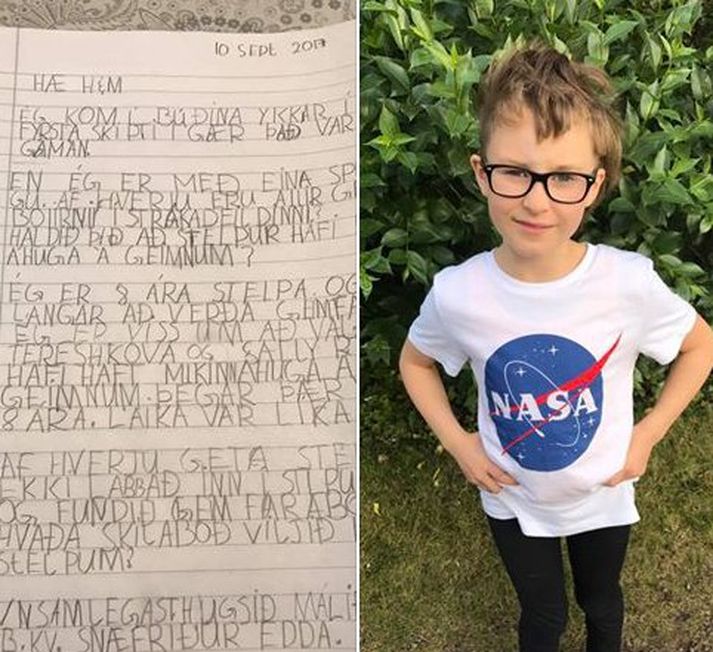 10 SEPT 2017
HÆ H&M
ÉG KOM Í BÚÐINA YKKAR Í
FYRSTA SKIPTI Í GÆR ÞAÐ VAR
GAMAN.
EN ÉG ER MEÐ EINA SP
GU. AF HVERJU ERU ALLIR G
BOLIRNIR Í STRÁKADEILDINNI?
HALDIÐ ÞIÐ AÐ STELPUR HAFI
ÁHUGA Á GEIMNUM?
ÉG ER 8 ÁRA STELPA OG
LANGAR AÐ VERÐA GEIMFA
ÉG ER VISS UM AÐ VAL
TERESHKOVA OG SALLY R
HAFI HAFT MIKINN ÁHUGA Á
GEIMNUM ÞEGAR ÞÆR
8 ÁRA. LAIKA VAR KA
AF HVERJU GETA STE
EKKI LABBAÐ INN Í STELPU
OG FUNDIÐ GEIMFARABO
HVAÐA SKILABOÐ VILJIÐ
STELPUM?
VINSAMLEGAST HUGSIÐ MÁLIÐ
B.KV. SNÆFRÍÐUR EDDA.
NASA